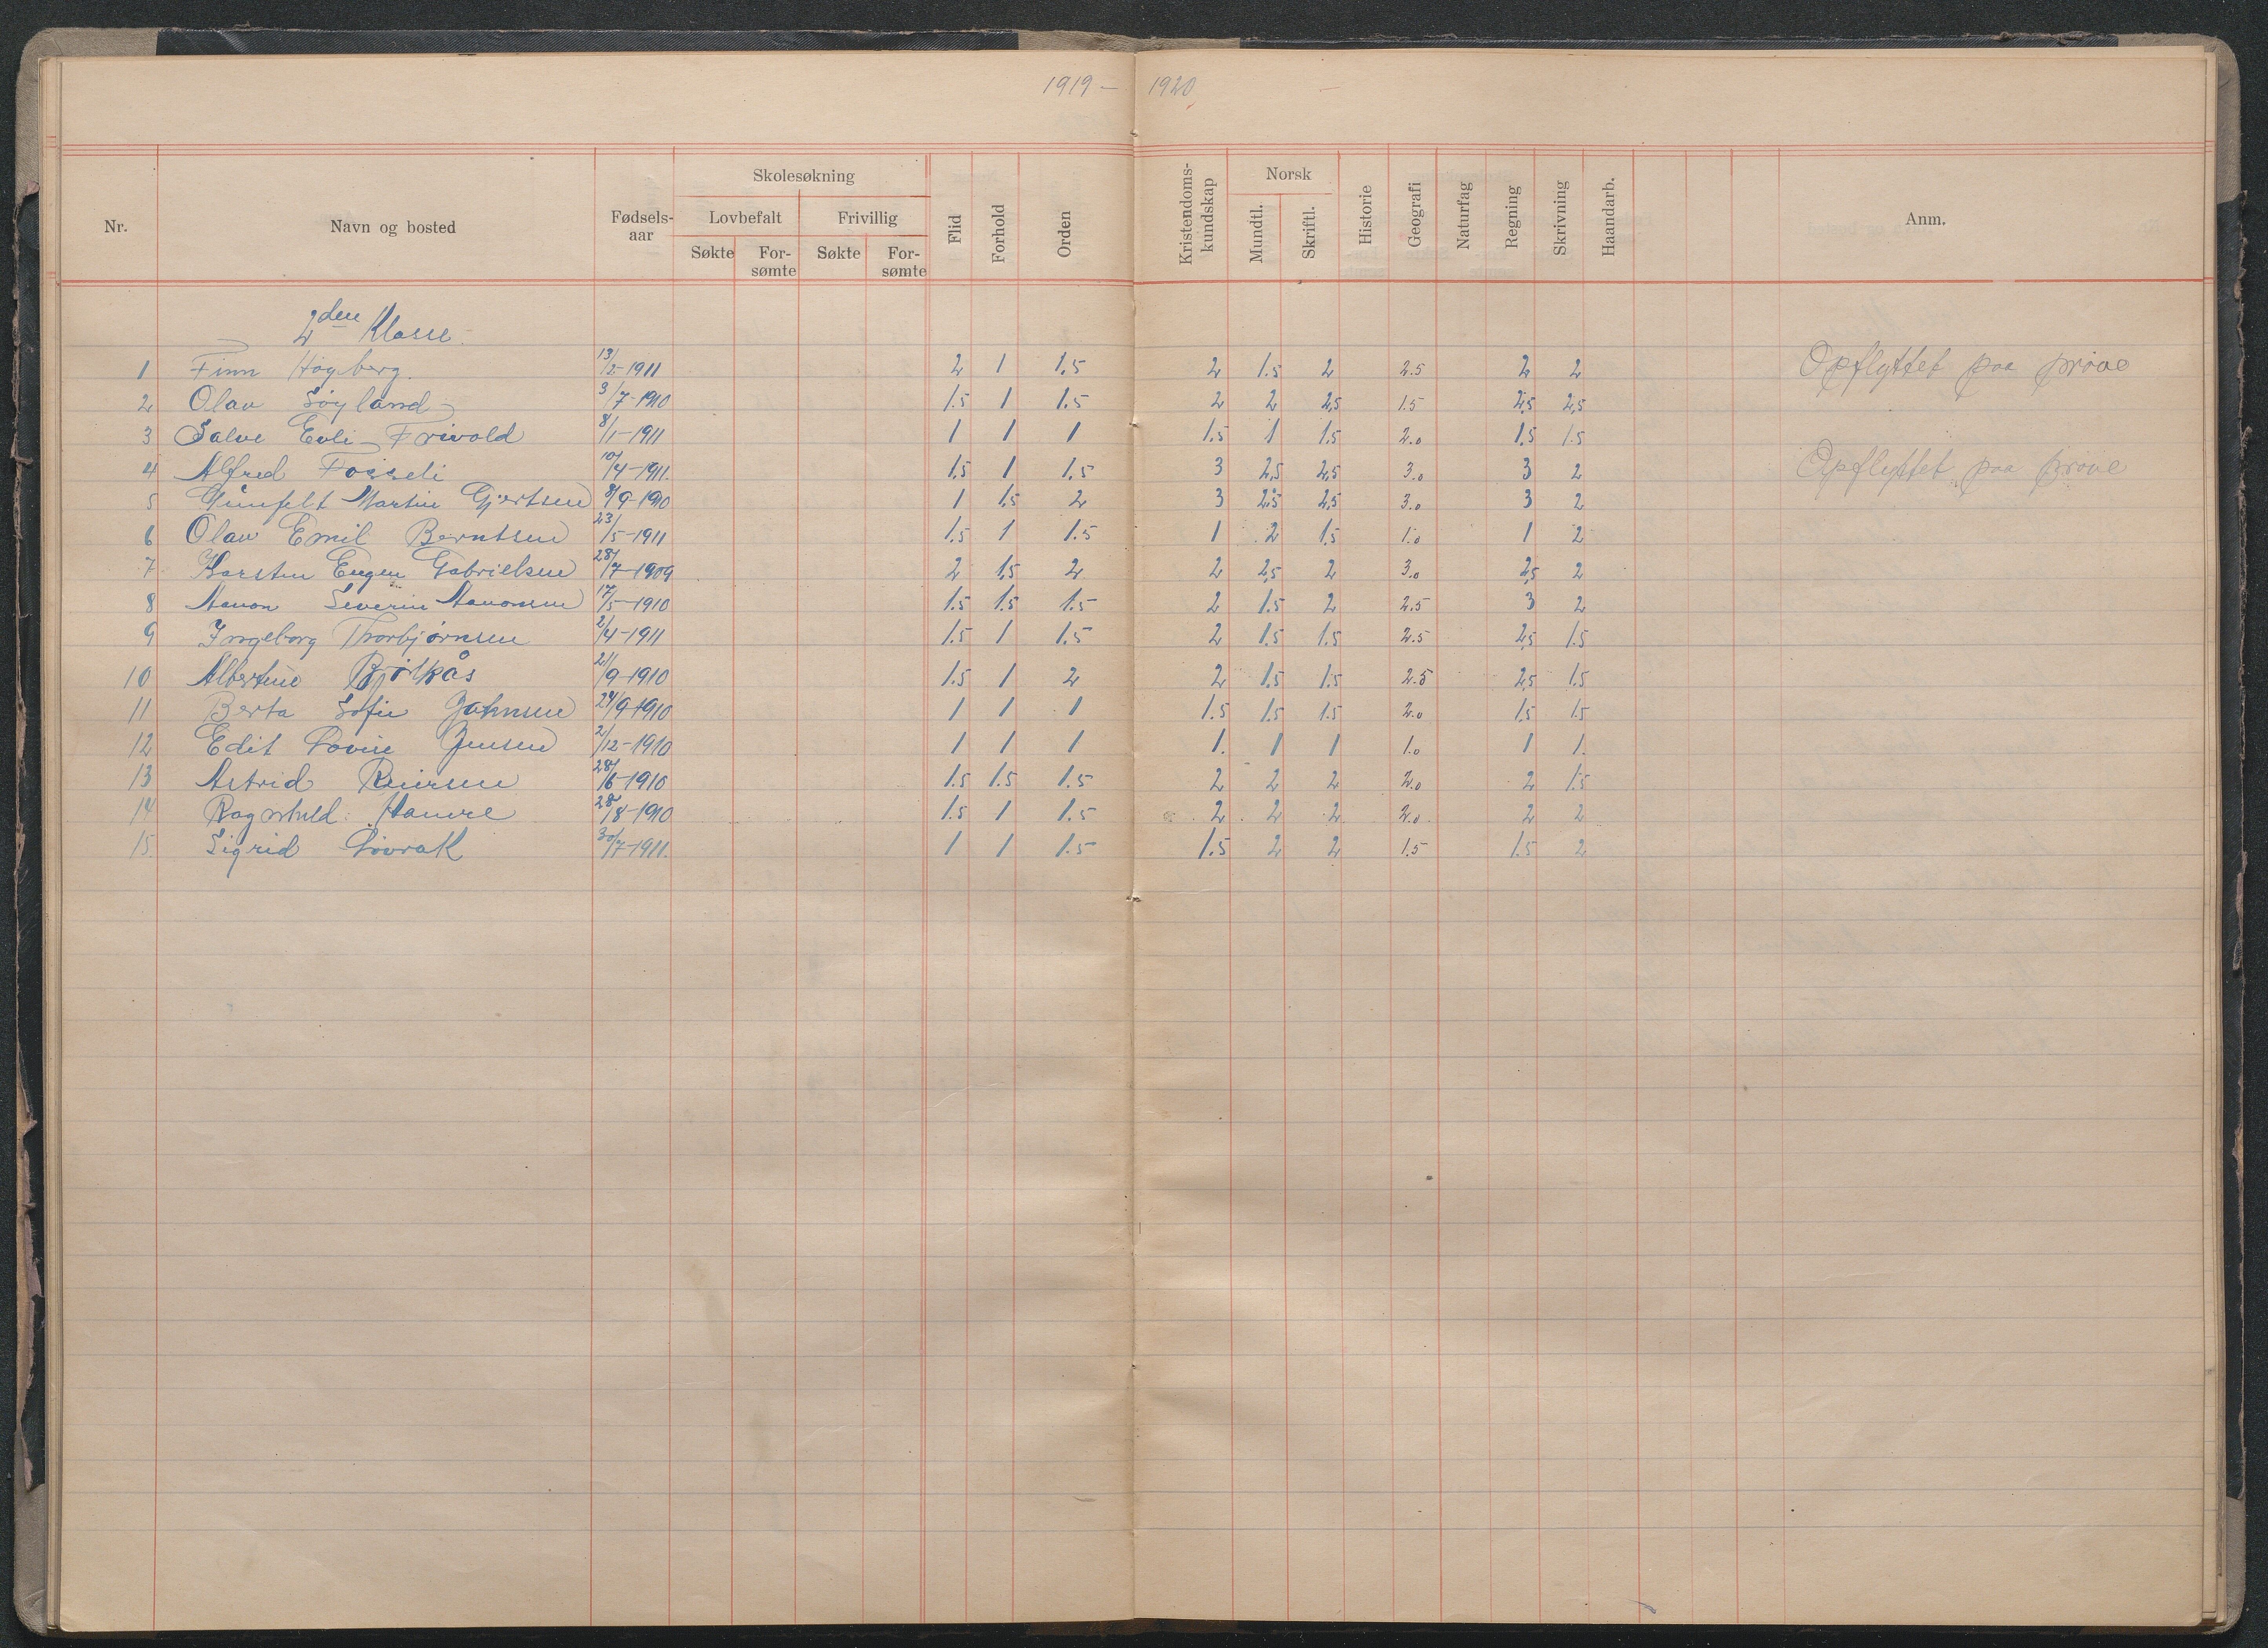 1919 – 1920
Nr. Navn og bosted Fødsels-aar Skolesøkning Lovbefalt Søkte For-sømte Frivillig Søkte For-sømte Flid Forhold Orden Kristendoms-kundskap Norsk Mundtl. Skriftl. Historie Geografi Naturfag Regning Skrivning Haandarb. Anm.
2den Klasse.
1 Finn Høgberg. 13/2-1911 2 1 1.5 2 1.5 2 2.5 2 2 Opflyttet paa prøve
2 Olav Søyland 3/7-1910 1.5 1 1.5 2 2 2,5 1.5 2,5 2,5
3 Salve Evli-Trivold 8/1-1911 1 1 1 1.5 1 1.5 2.0 1.5 1.5
4 Alfred Fosseli 10/4-1911. 1.5 1 1.5 3 2,5 2,5 3.0 3 2 Opflyttet paa prøve
5 Martin Gjertsen 8/9-1910 1 1.5 2 3 2.5 2,5 3.0 3 2
6 Olav Emil Berntsen 23/5-1911 1.5 1 1.5 1 2 1.5 1.0 1 2
7 Karsten Eugen Gabrielsen 28/7-1909 2 1.5 2 2 2,5 2 3.0 2,5 2
8 Aanon Severin Aanonsen 17/5-1910 1.5 1.5 1.5 2 1.5 2 2.5 3 2
9 Ingeborg Thorbjørnsen 2/4-1911 1.5 1 1.5 2 1.5 1.5 2.5 2,5 1.5
10 Albertine Bjølkås 21/9-1910 1.5 1 2 2 1.5 1.5 2.5 2,5 1.5
11 Berta Sofie Johnsen 24/9-1910 1 1 1 1.5 1.5 1.5 2.0 1.5 1.5
12 Edit Lovise Jensen 2/12-1910 1 1 1 1. 1 1 1.0 1 1.
13 Astrid Reiersen 28/6-1910 1.5 1.5 1.5 2 2 2 2.0 2 1.5
14 Ragnhild Hamre 28/8-1910 1.5 1 1.5 2 2 2 2.0 2 2
15. Sigrid Løvrak 30/7-1911. 1 1 1.5 1.5 2 2 1.5 1.5 2